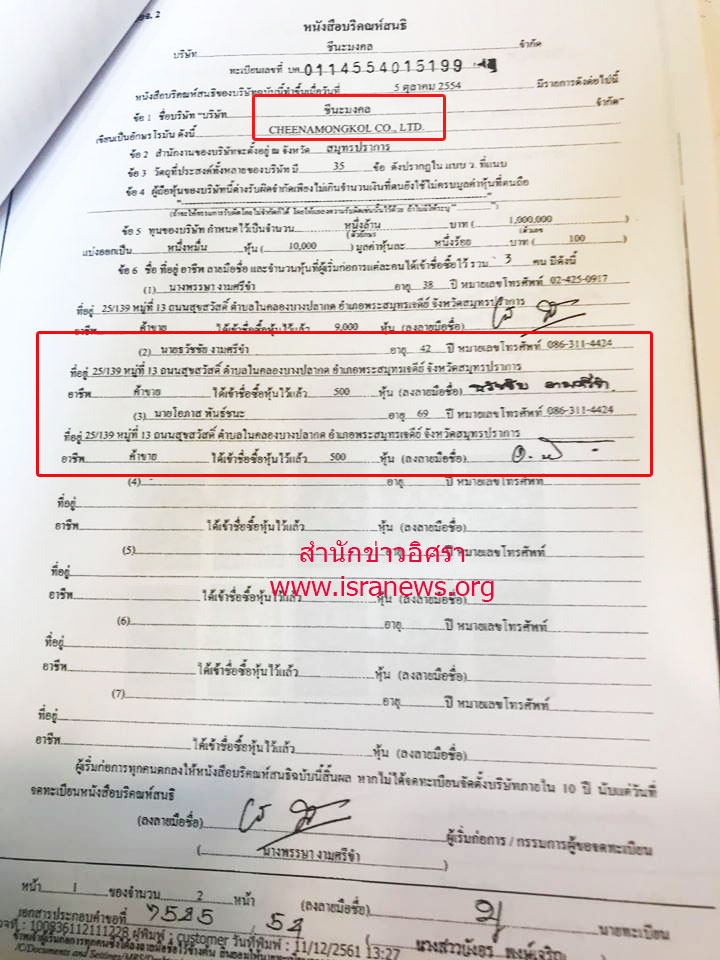 อจ. 2
หนังสือบริคณห์สนธิ
บริษัท ชีนะมงคล จำกัด
ทะเบียนเลขที่ บค. 0114554015199
หนังสือบริคณห์สนธิของบริษัทฉบับนี้ทำขึ้นเมื่อวันที่ 5 ตุลาคม 2554 มีรายการดังต่อไปนี้
ข้อ 1 ชื่อบริษัท "บริษัท ชีนะมงคล จำกัด"
เขียนเป็นอักษรโรมัน ดังนี้ CHEENAMONGKOL CO., LTD.
ข้อ 2 สำนักงานของบริษัทจะตั้งอยู่ ณ จังหวัด สมุทรปราการ
ข้อ 3 วัตถุที่ประสงค์ทั้งหลายของบริษัท มี 35 ข้อ ดังปรากฏใน แบบ ว. ที่แนบ
ข้อ 4 ผู้ถือหุ้นของบริษัทนี้ต่างรับผิดจำกัดเพียงไม่เกินจำนวนเงินที่ตนยังใช้ไม่ครบมูลค่าหุ้นที่ตนถือ
ข้อ 5 ทุนของบริษัท กำหนดไว้เป็นจำนวน หนึ่งล้าน บาท ( 1,000,000 )
(ตัวอักษร) (ตัวเลข)
แบ่งออกเป็น หนึ่งหมื่น หุ้น ( 10,000 ) มูลค่าหุ้นละ หนึ่งร้อย บาท ( 100 )
ข้อ 6 ชื่อ ที่อยู่ อาชีพ ลายมือชื่อ และจำนวนหุ้นที่ผู้เริ่มก่อการแต่ละคนได้เข้าชื่อซื้อไว้ รวม 3 คน มีดังนี้
(1) นางพรรษา งามศรีขำ อายุ 38 ปี หมายเลขโทรศัพท์ 02-425-0917
ที่อยู่ 25/139 หมู่ที่ 13 ถนนสุขสวัสดิ์ ตำบลในคลองบางปลากด อำเภอพระสมุทรเจดีย์ จังหวัดสมุทรปราการ
อาชีพ ค้าขาย ได้เข้าชื่อซื้อหุ้นไว้แล้ว 9,000 หุ้น (ลงลายมือชื่อ)
(2) นายธวัชชัย งามศรีขำ อายุ 42 ปี หมายเลขโทรศัพท์ 086-311-4424
ที่อยู่ 25/139 หมู่ที่ 13 ถนนสุขสวัสดิ์ ตำบลในคลองบางปลากด อำเภอพระสมุทรเจดีย์ จังหวัดสมุทรปราการ
อาชีพ ค้าขาย ได้เข้าชื่อซื้อหุ้นไว้แล้ว 500 หุ้น (ลงลายมือชื่อ) ธวัชชัย งามศรีขำ
(3) นายโอภาส พันธ์ชนะ อายุ 69 ปี หมายเลขโทรศัพท์ 086-311-4424
ที่อยู่ 25/139 หมู่ที่ 13 ถนนสุขสวัสดิ์ ตำบลในคลองบางปลากด อำเภอพระสมุทรเจดีย์ จังหวัดสมุทรปราการ
อาชีพ ค้าขาย ได้เข้าชื่อซื้อหุ้นไว้แล้ว 500 หุ้น (ลงลายมือชื่อ)
(4) อายุ ปี หมายเลขโทรศัพท์
ที่อยู่
อาชีพ ได้เข้าชื่อซื้อหุ้นไว้แล้ว หุ้น (ลงลายมือชื่อ)
สำนักข่าวอิศรา
(5) อายุ ปี หมายเลขโทรศัพท์
ที่อยู่
www.isranews.org
อาชีพ ได้เข้าชื่อซื้อหุ้นไว้แล้ว หุ้น (ลงลายมือชื่อ)
(6) อายุ ปี หมายเลขโทรศัพท์
ที่อยู่
อาชีพ ได้เข้าชื่อซื้อหุ้นไว้แล้ว หุ้น (ลงลายมือชื่อ)
(7) อายุ ปี หมายเลขโทรศัพท์
ที่อยู่
อาชีพ ได้เข้าชื่อซื้อหุ้นไว้แล้ว หุ้น (ลงลายมือชื่อ)
ผู้เริ่มก่อการทุกคนตกลงให้หนังสือบริคณห์สนธิฉบับนี้สิ้นผล หากไม่ได้จดทะเบียนจัดตั้งบริษัทภายใน 10 ปี นับแต่วันที่
จดทะเบียนหนังสือบริคณห์สนธิ
(ลงลายมือชื่อ) ผู้เริ่มก่อการ / กรรมการผู้ขอจดทะเบียน
( นางพรรษา งามศรีขำ )
หน้า 1 ของจำนวน 2 หน้า (ลงลายมือชื่อ) นายทะเบียน
เอกสารประกอบคำขอที่ 7525 / 54
100836112111228 ผู้พิมพ์ : customer วันที่พิมพ์ : 11/12/2561 13:27